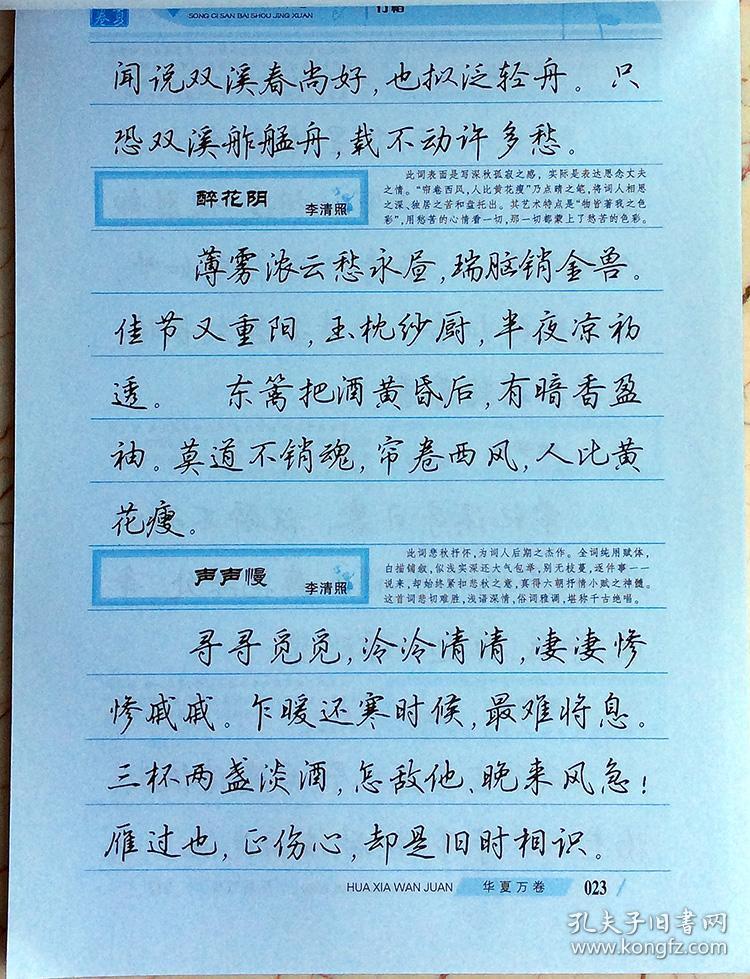 SONG CI SAN BAI SHOU JING XUAN
闻说双溪春尚好，也拟泛轻舟。只
恐双溪舴艋舟，载不动许多愁。
醉花阴
李清照
此词表面是写深秋孤寂之感，实际是表达思念丈夫
之情。“帘卷西风，人比黄花瘦”乃点睛之笔，将词人相思
之深、独居之苦和盘托出。其艺术特点是“物皆著我之色
彩”，用愁苦的心情看一切，那一切都蒙上了愁苦的色彩。
薄雾浓云愁永昼，瑞脑销金兽。
佳节又重阳，玉枕纱厨，半夜凉初
透。 东篱把酒黄昏后，有暗香盈
袖。莫道不销魂，帘卷西风，人比黄
花瘦。
声声慢
李清照
此词悲秋抒怀，为词人后期之杰作。全词纯用赋体，
白描铺叙，似浅实深还大气包举，别无枝蔓，逐件事一一
说来，却始终紧扣悲秋之意，真得六朝抒情小赋之神髓。
这首词悲切难胜，浅语深情，俗词雅调，堪称千古绝唱。
寻寻觅觅，冷冷清清，凄凄惨
惨戚戚。乍暖还寒时候，最难将息。
三杯两盏淡酒，怎敌他、晚来风急！
雁过也，正伤心，却是旧时相识。
HUA XIA WAN JUAN 华夏万卷 023
孔夫子旧书网
www.kongfz.com